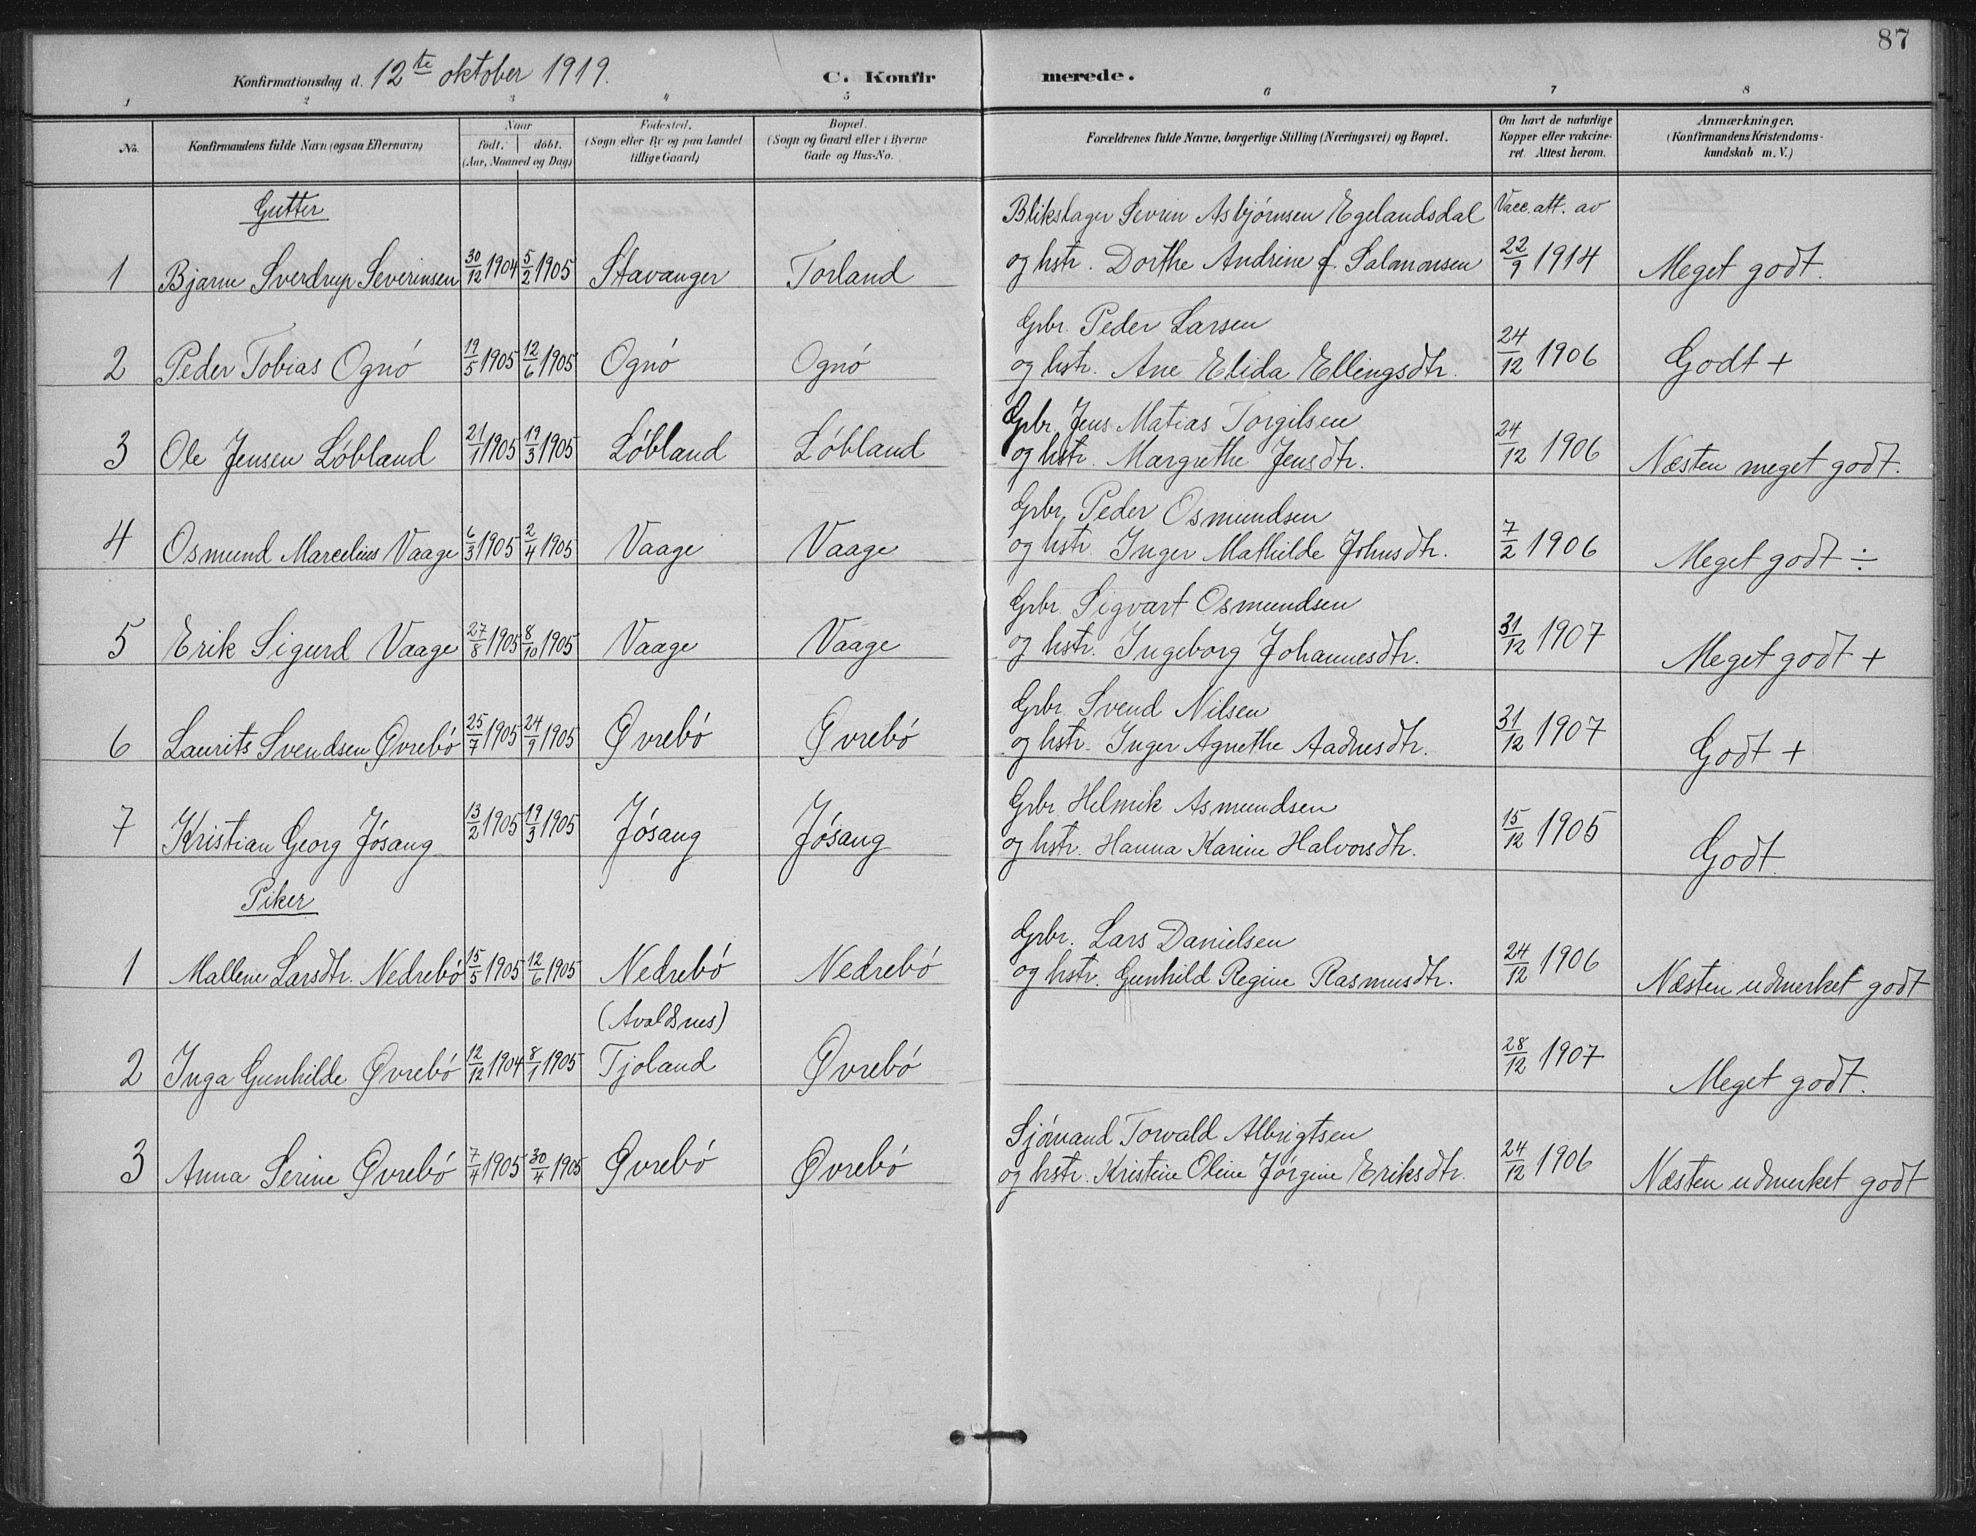 87
Konfirmationsdag d. 12te oktober 1919. C. Konfirmerede.
1 2 3 4 5 6 7 8
No. Konfirmandens fulde Navn (ogsaa Efternavn) Naar født. døbt. (Aar, Maaned og Dag) Fødested. (Sogn eller By og paa Landet tillige Gaard) Bopæl. (Sogn og Gaard eller i Byerne Gade og Hus-No. Forældrenes fulde Navne, borgerlige Stilling (Næringsvei) og Bopæl. Om havt de naturlige Kopper eller vakcineret. Attest herom. Anmærkninger. (Konfirmandens Kristendomskundskab m. V.)
Gutter
Blikslager Sevrin Asbjørnsen Egelandsdal Vacc. att. av
1 Bjarne Sverdrup Severinsen 30/12 1904 5/2 1905 Stavanger Torland og hstr. Dorthe Andrine f. Salamonsen 22/9 1914 Meget godt.
Gbr. Peder Larsen
2 Peder Tobias Ognó 19/5 1905 12/6 1905 Ognó Ognó og hstr. Ane Elida Ellingsdtr. 24/12 1906 Godt +
Gbr. Jens Matias Torgilsen
3 Ole Jensen Lóbland 21/1 1905 19/3 1905 Lóbland Lóbland og hstr. Margrethe Jensdtr. 24/12 1906 Næsten meget godt.
Gbr. Peder Osmundsen
4 Osmund Marcelius Vaage 6/3 1905 2/4 1905 Vaage Vaage og hstr. Inger Mathilde Johnsdtr. 7/2 1906 Meget godt ÷
Gbr. Sigvart Osmundsen
5 Erik Sigurd Vaage 27/8 1905 8/10 1905 Vaage Vaage og hstr. Ingeborg Johannesdtr. 31/12 1907 Meget godt +
Gbr. Svend Nilsen
6 Laurits Svendsen Øvrebó 25/7 1905 24/9 1905 Øvrebó Øvrebó og hstr. Inger Agnethe Aadnesdtr. 31/12 1907 Godt +
Gbr. Helmik Asmundsen
7 Kristian Georg Jósang 13/2 1905 19/3 1905 Jósang Jósang og hstr. Hanna Karine Halvorsdtr. 15/12 1905 Godt
Piker
Gbr. Lars Danielsen
1 Mallene Larsdtr. Nedrebó 15/5 1905 12/6 1905 Nedrebó Nedrebó og hstr. Gunhild Regine Rasmusdtr. 24/12 1906 Næsten udmerket godt
(Avaldsnes)
2 Inga Gunhilde Øvrebó 12/12 1904 8/1 1905 Tjoland Øvrebó 28/12 1907 Meget godt.
Sjómand Torvald Albrigtsen
3 Anna Serine Øvrebó 7/4 1905 30/4 1905 Øvrebó Øvrebó og hstr. Kristine Oline Jórgine Eriksdtr. 24/12 1906 Næsten udmerket godt